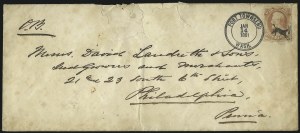 P.B.
PORT TOWNSEND
JAN
24
1881
WASH.
Messrs. David Landreth & Sons
Seed Growers and Merchants,
21 & 23 South 6th Street,
Philadelphia
Penn'a.